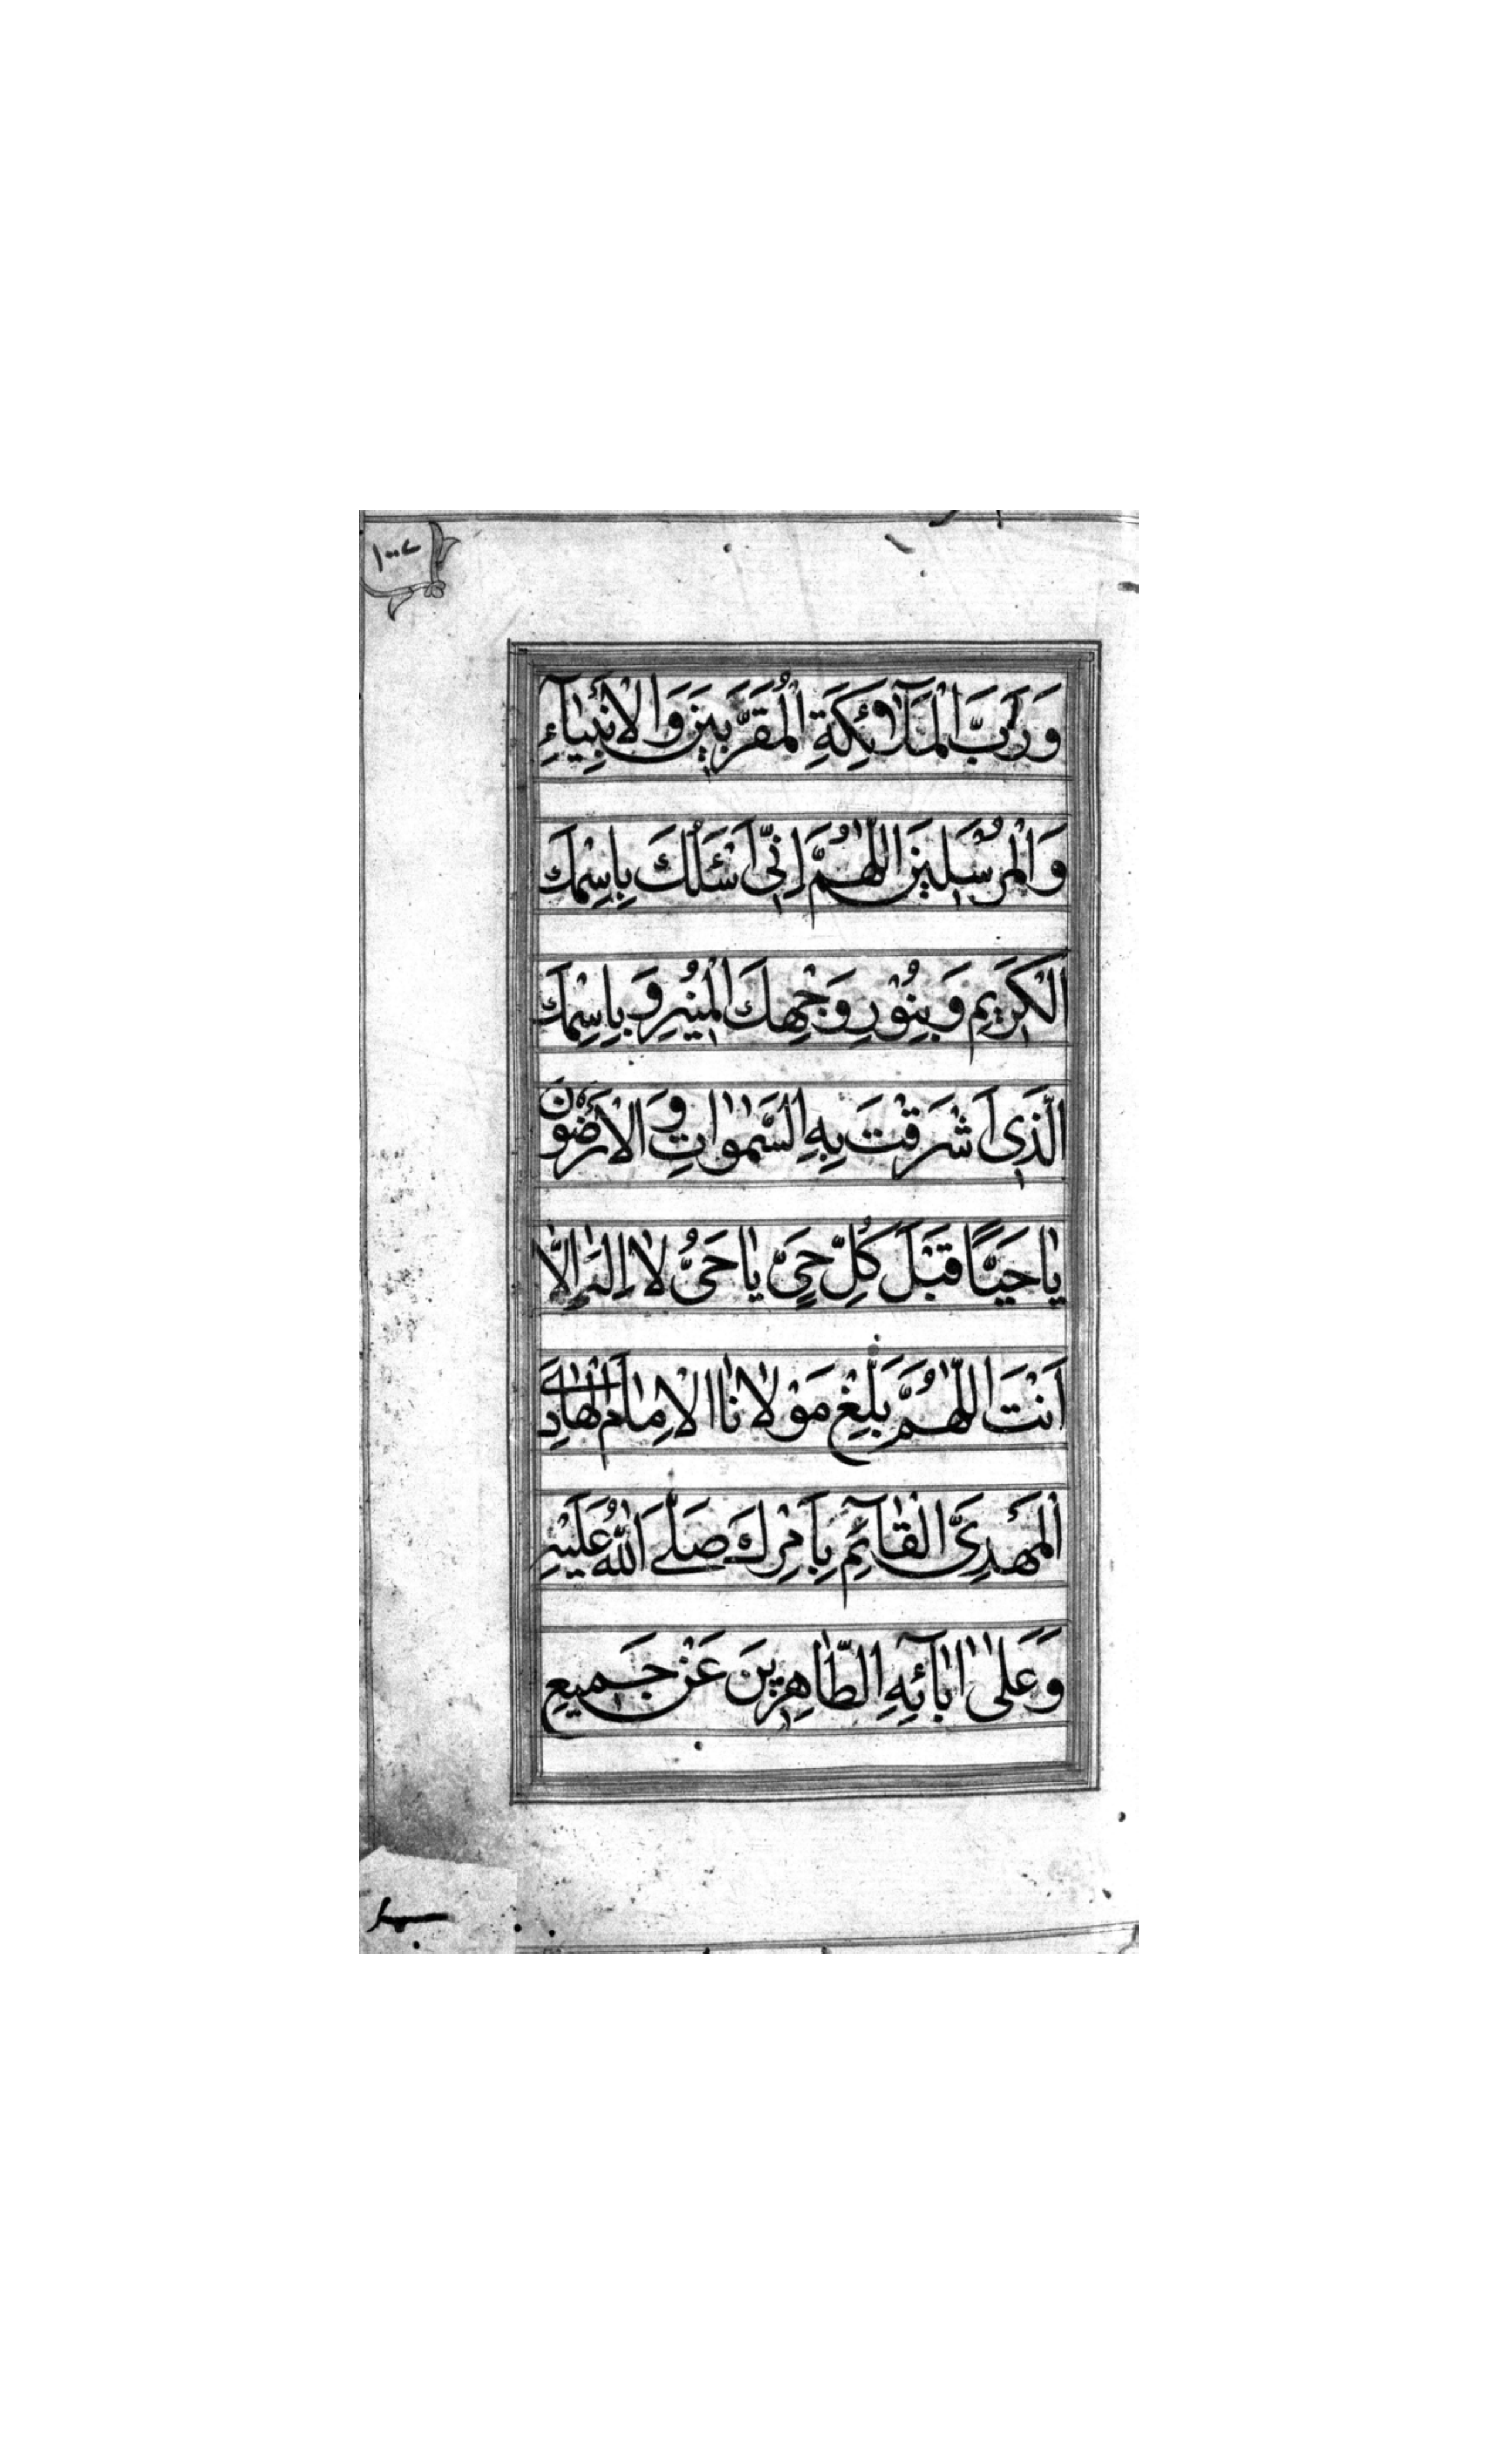 وَ رَبَّ الْمَلآئِكَةِ الْمُقَرَّبينَ وَ الْاَنْبِيآءِ
وَ الْمُرْسَلينَ اَللّٰهُمَّ اِنّى اَسْئَلُكَ بِاِسْمِكَ
الْكَريمِ وَ بِنُوْرِ وَجْهِكَ الْمُنيرِ وَ بِاِسْمِكَ
الَّذى اَشْرَقَتْ بِهِ السَّمٰوٰاتِ وَ الْاَرَضُونَ
يٰا حَيًّا قَبْلَ كُلِّ حَيٍّ يٰا حَىُّ لٰا اِلٰهَ اِلّٰا
اَنْتَ اَللّٰهُمَّ بَلِّغْ مَوْلٰانَا الْاِمٰامَ الْهٰادِىَ
الْمَهْدِىَّ الْقٰآئِمَ بِاَمْرِكَ صَلَّى اللّٰهُ عَلَيْهِ
وَ عَلٰى اٰبٰآئِهِ الطّٰاهِرينَ عَنْ جَميعِ